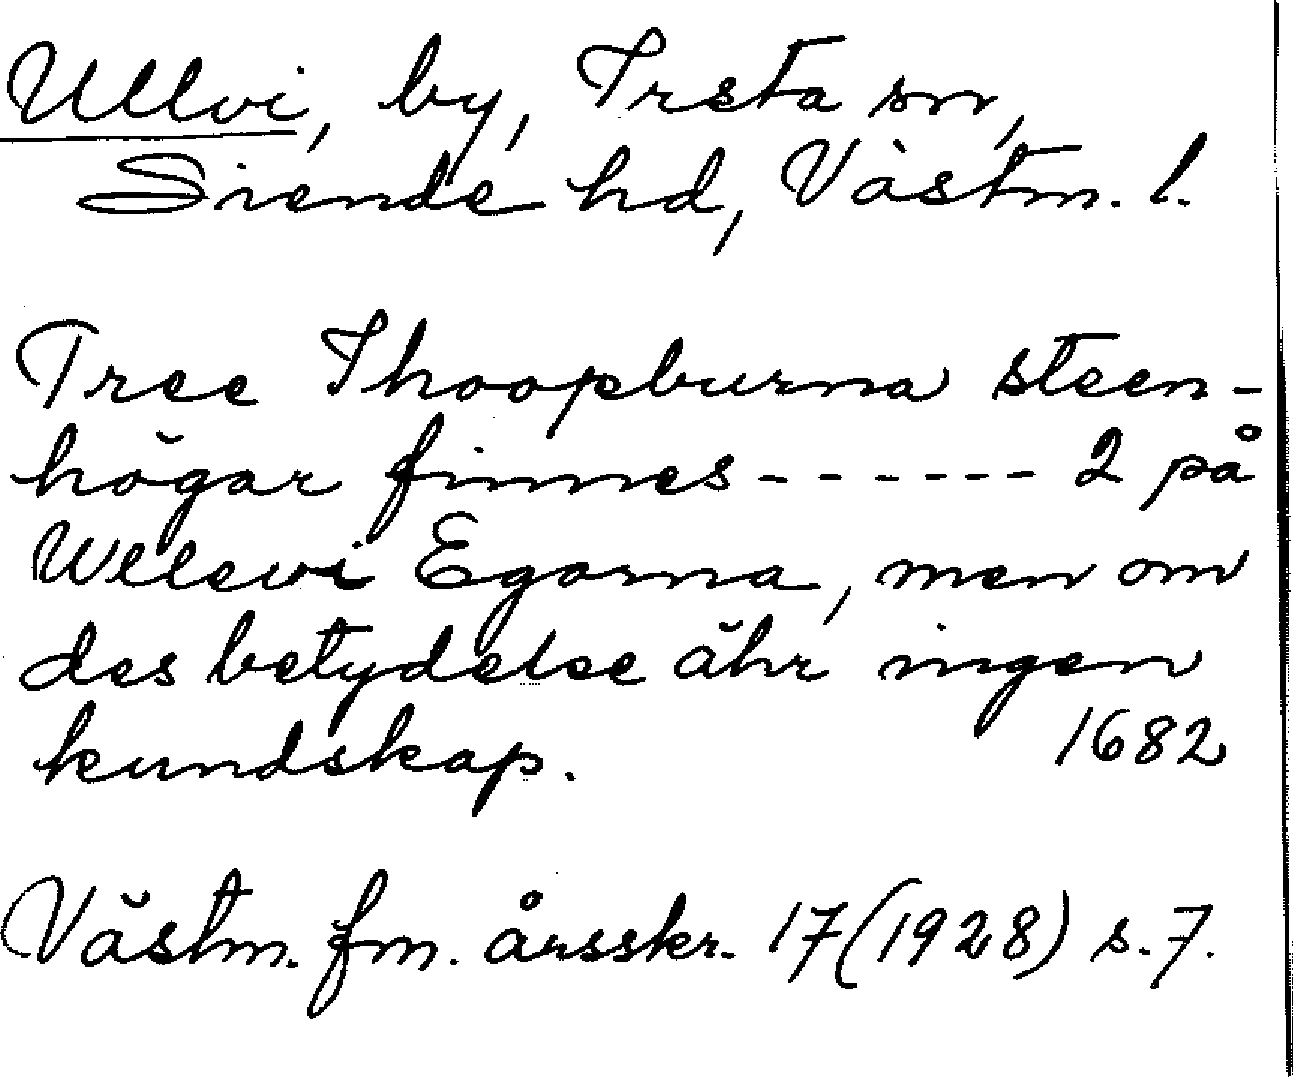 Ullvi, by, Irsta sn,
Siende hd, Västm. l.
Tree Ihoopburna steen-
högar finnes ------ 2 på
Wllevi Egorna, men om
des betydelse ähr ingen
kundskap. 1682
Västm. fm. årsskr. 17 (1928) s. 7.